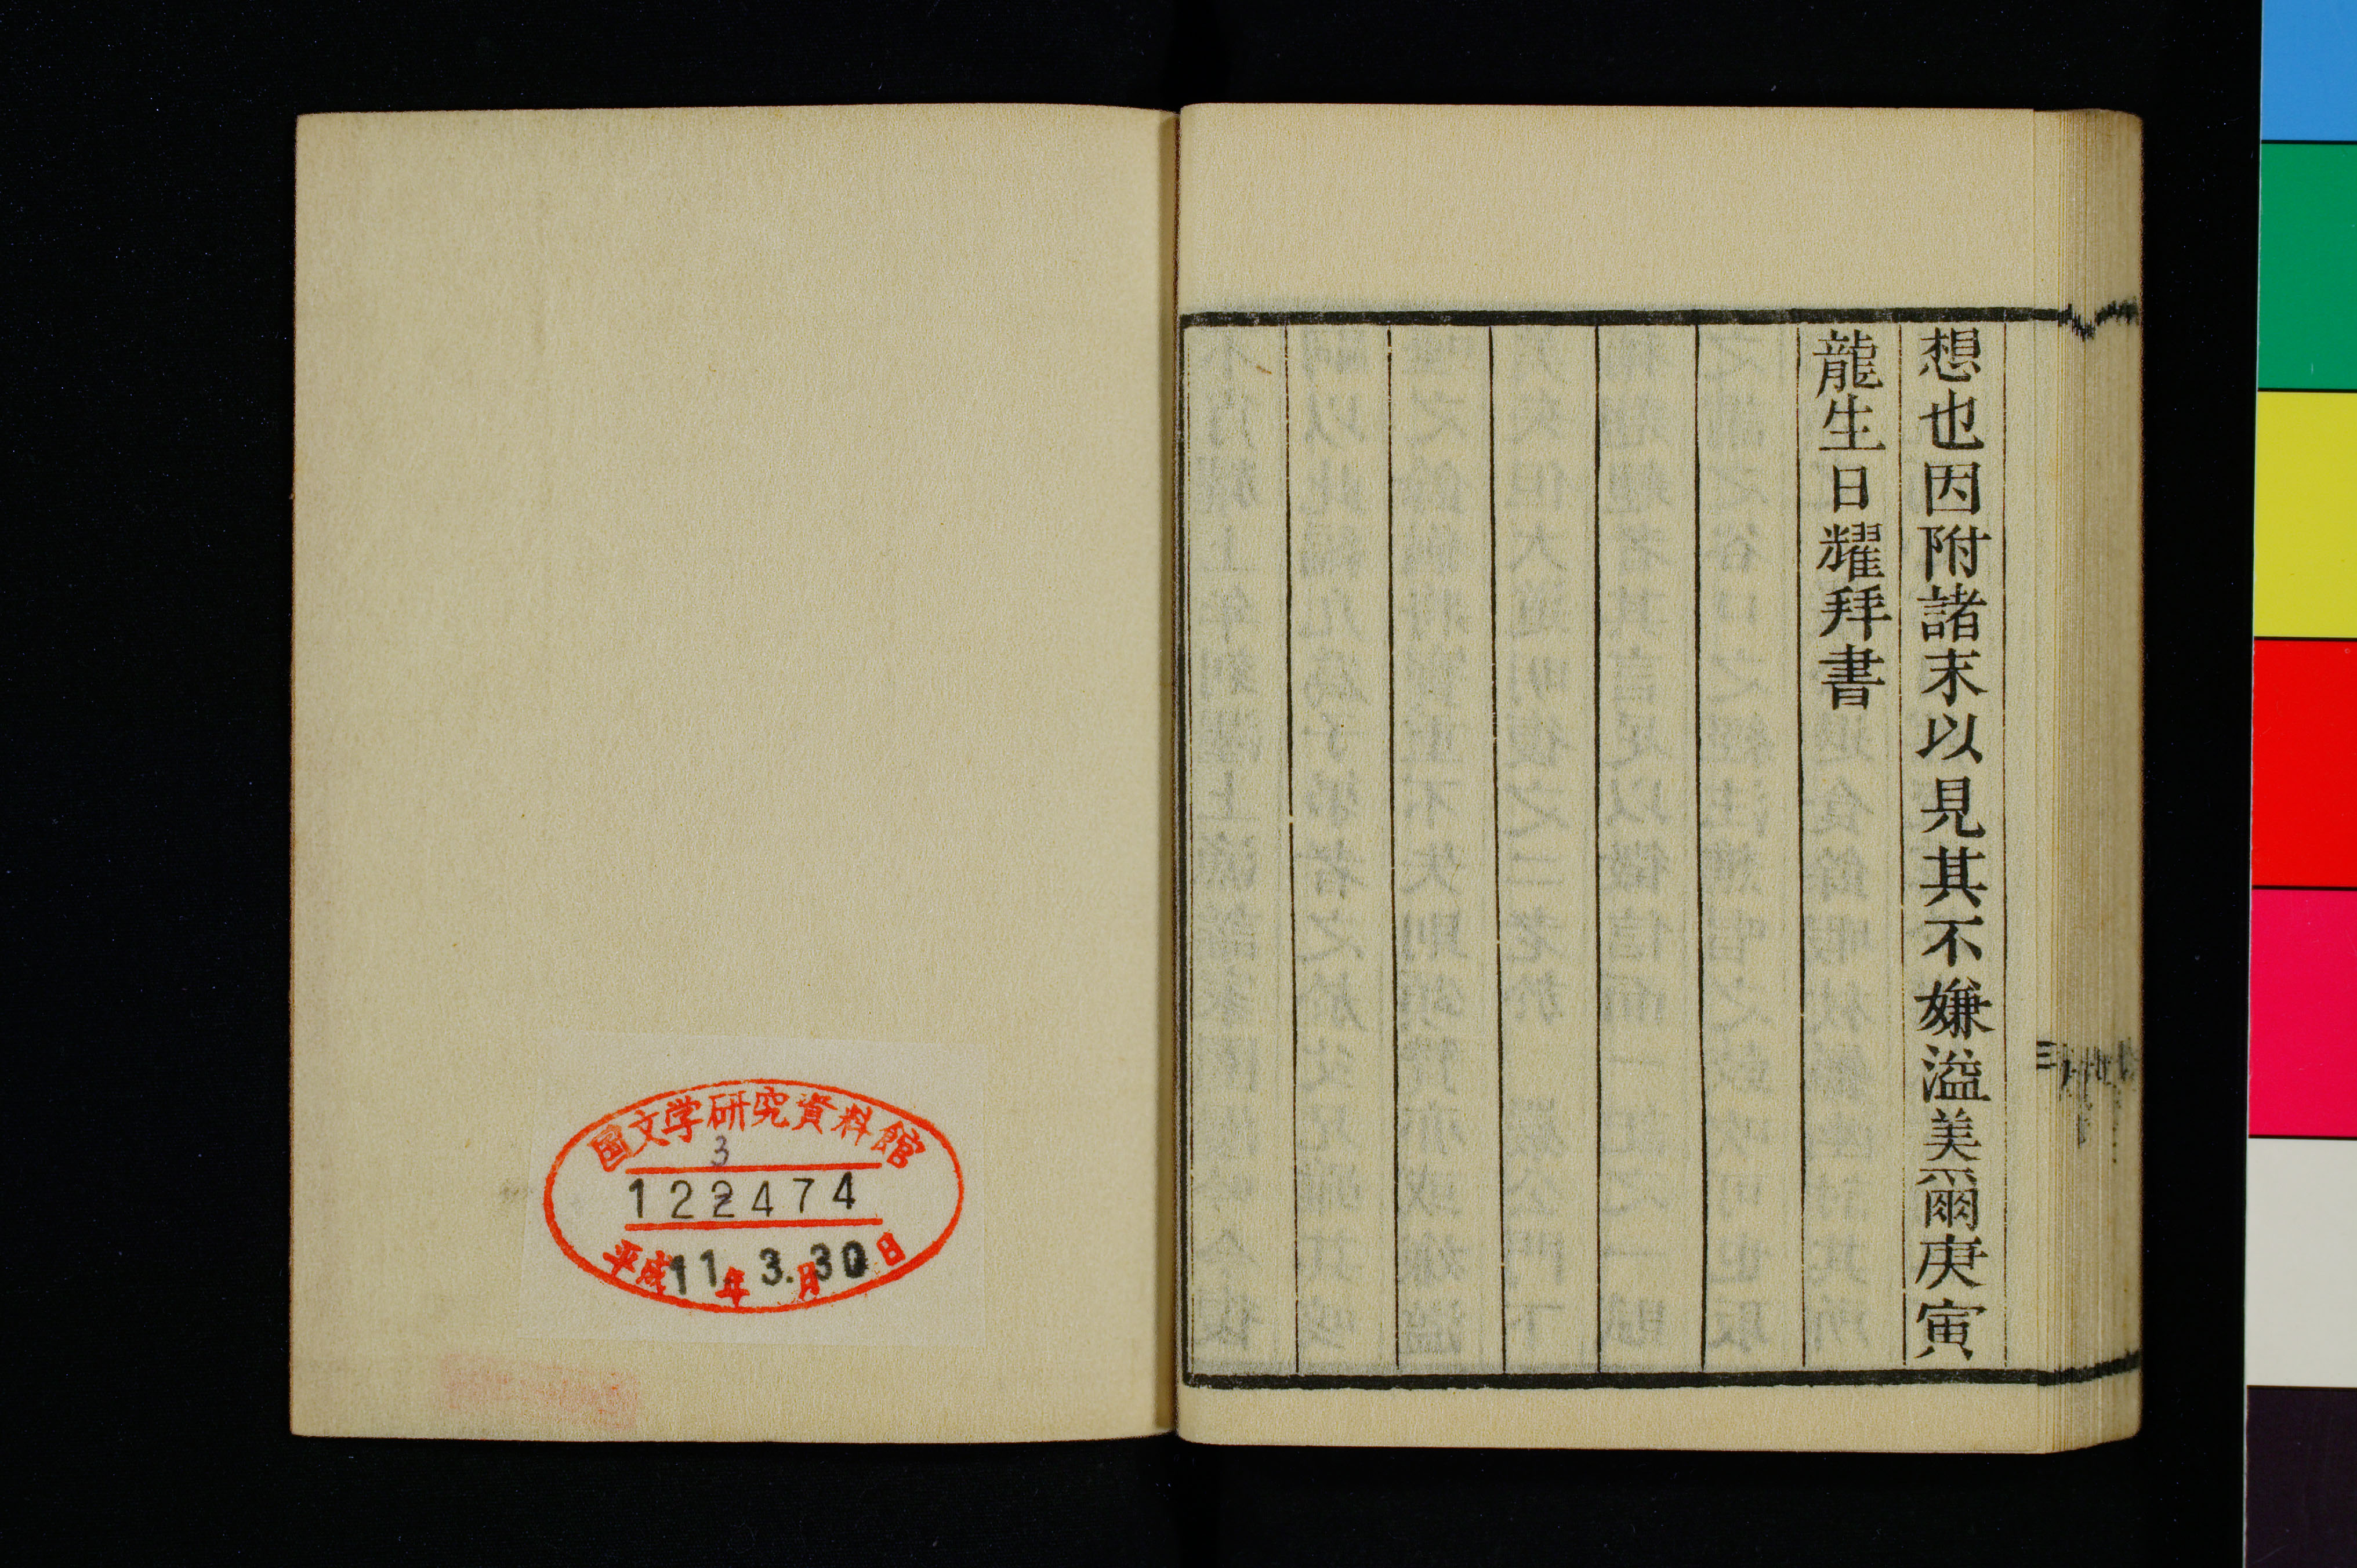 想也因附諸末以見其不嫌溢美爾庚寅
龍生日耀拜書
三
国文学研究資料館
3
122474
平成11年3.月30日